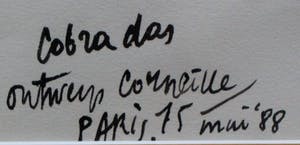 Cobra das
ontwerp Corneille
PARIS. 15 mai '88